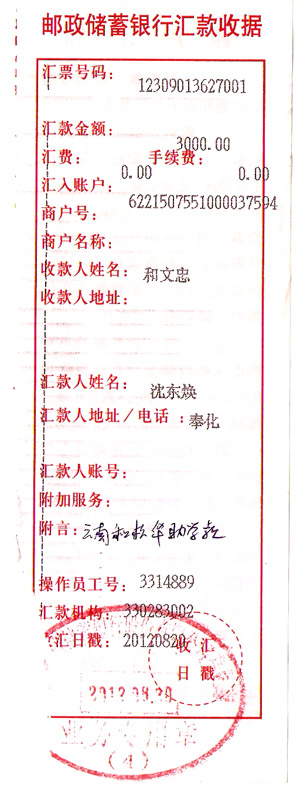 邮政储蓄银行汇款收据
汇票号码: 12309013627001
汇款金额: 3000.00
汇费: 0.00 手续费: 0.00
汇入账户: 6221507551000037594
商户号:
商户名称:
收款人姓名: 和文忠
收款人地址:
汇款人姓名: 沈东焕
汇款人地址/电话: 奉化
汇款人账号:
附加服务:
附言: 云南和根华助学款
操作员工号: 3314889
汇款机构: 330283002
收汇日戳: 20120820
收汇
日戳
2012.08.20
业务专用章
(4)